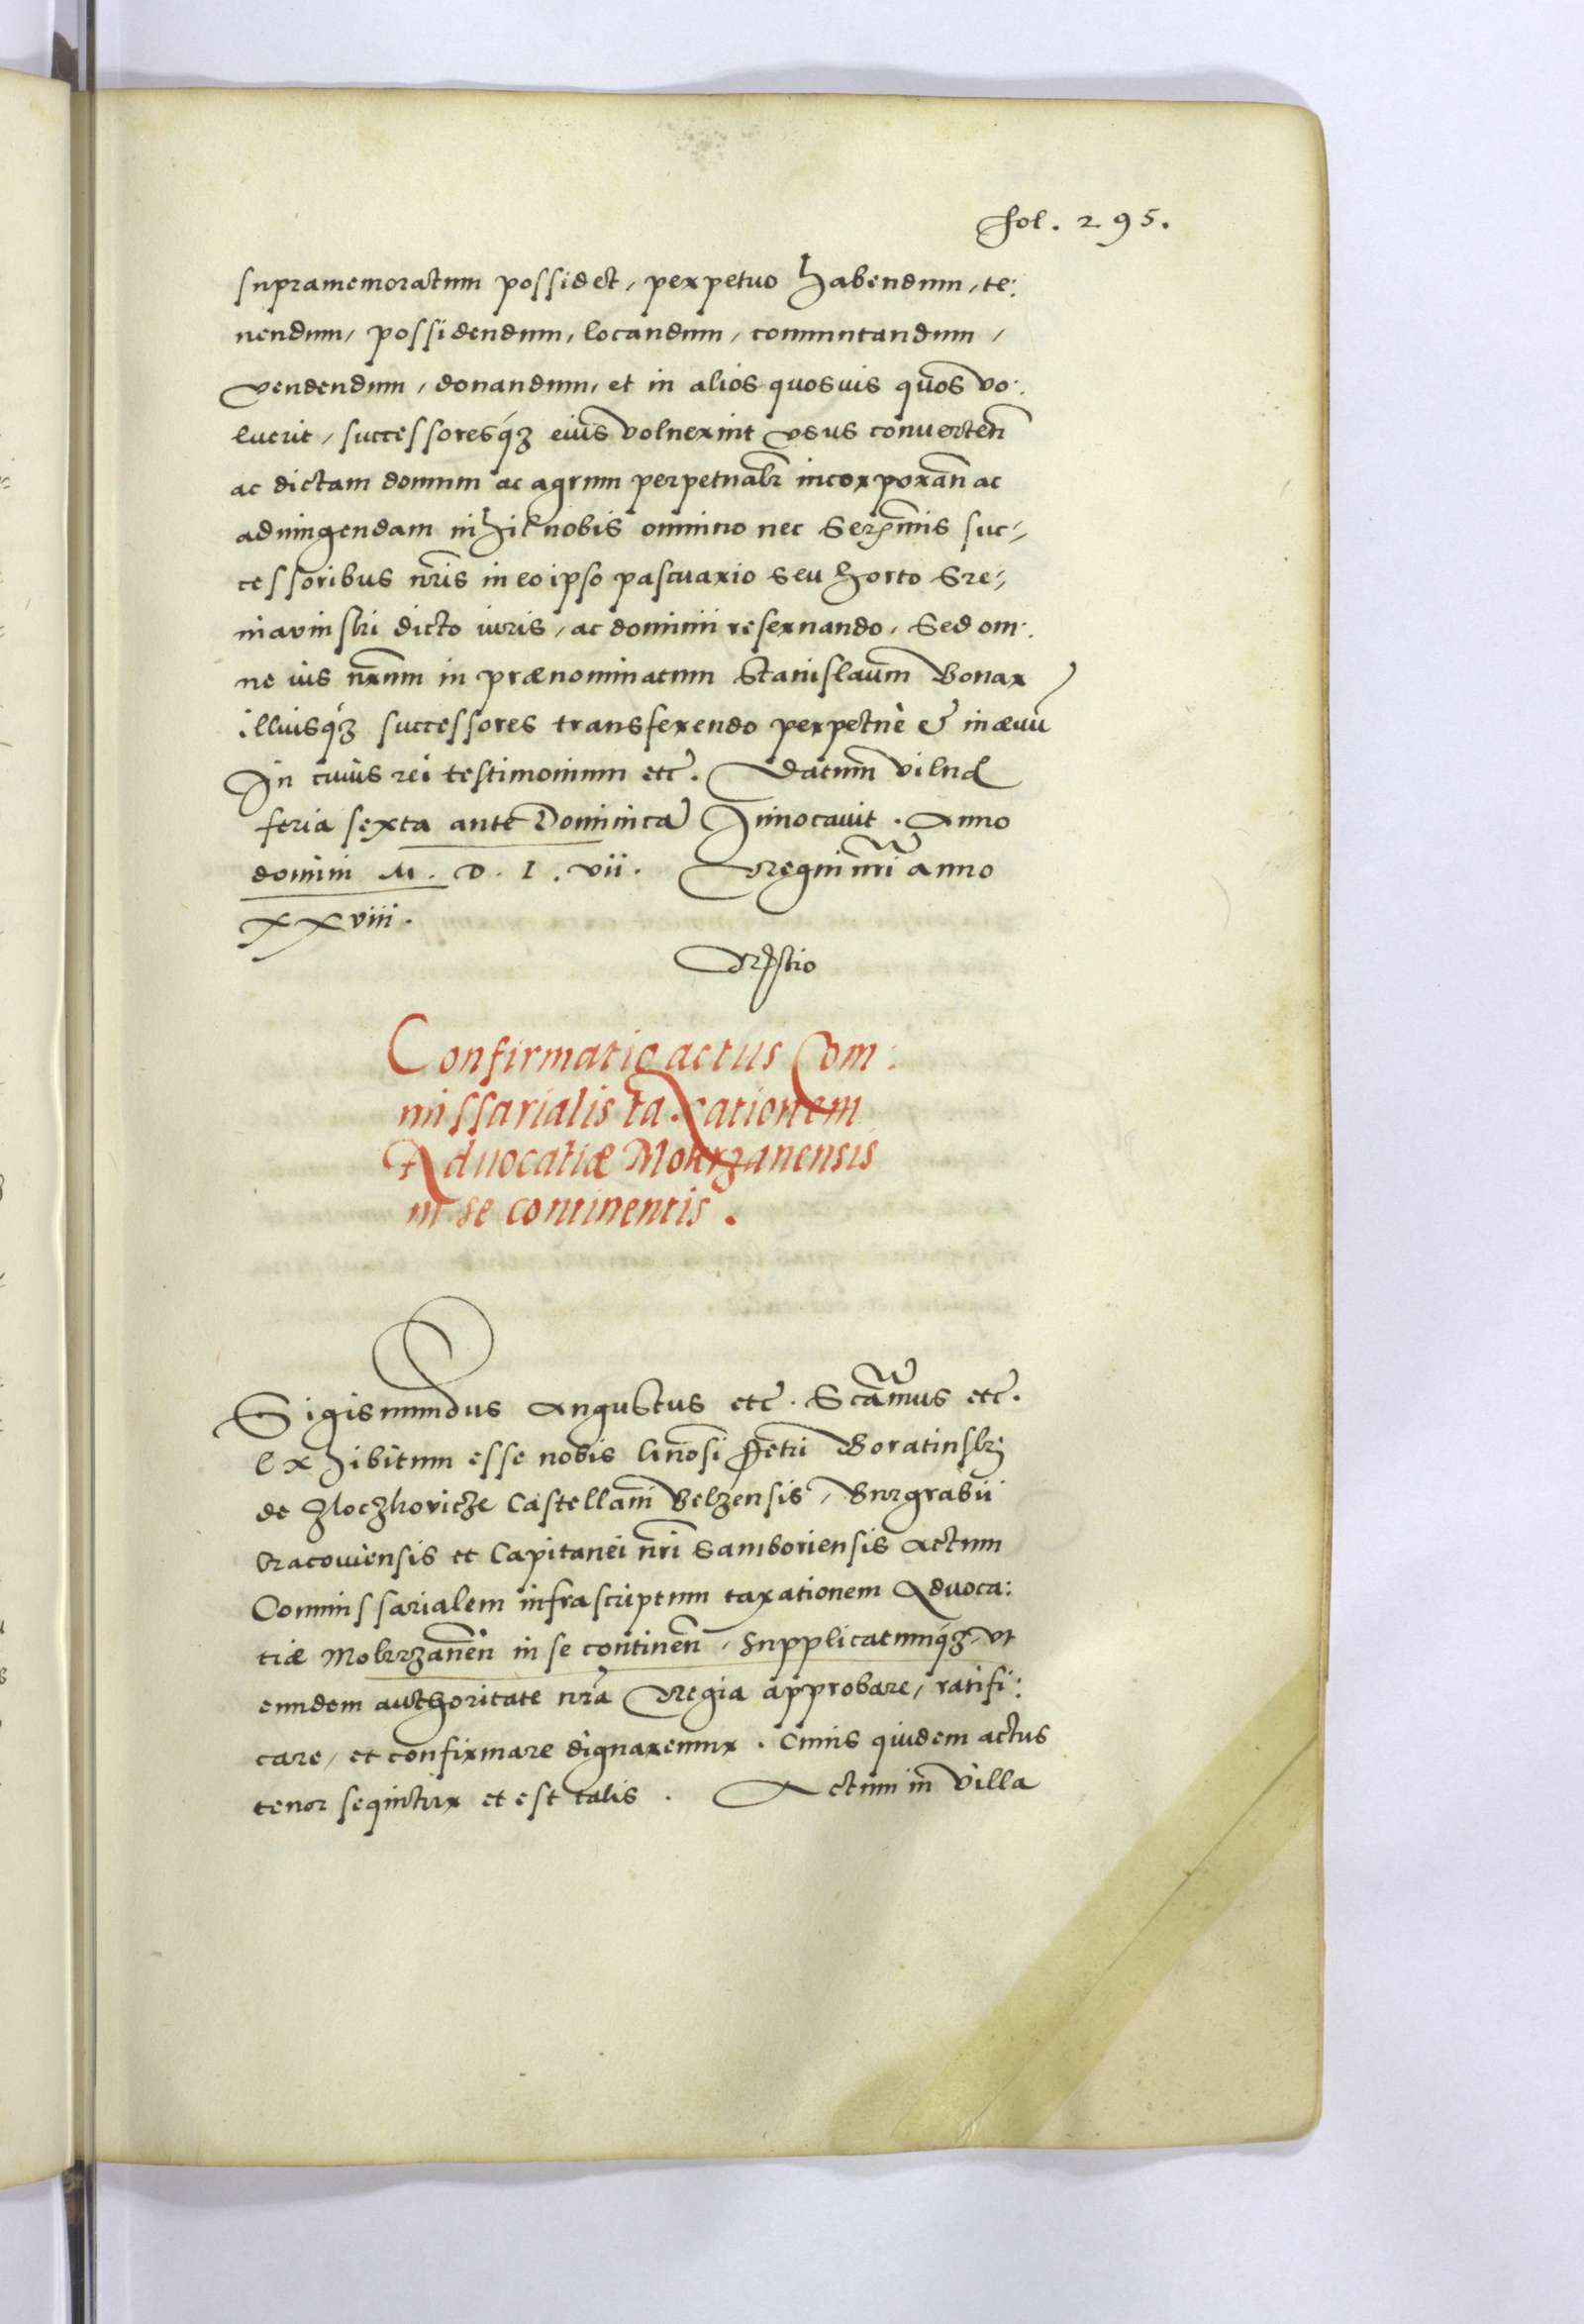 fol. 295.
supramemoratum possidet, perpetuo habendum, te:
nendum, possidendum, locandum, commutandum,
vendendum, donandum, et in alios quosuis quos vo:
luerit, successoresq́ꝫ eius voluerint vsus conuerten̄
ac dictam domum ac agrum perpetual̄r incorporan̄ ac
adiungendam nihil nobis omnino nec Ser̄mis suc=
cessoribus nr̄is in eo ipso pascuario seu horto Sre=
niawinski dicto iuris, ac dominii reseruando, Sed om:
ne ius nr̄um in prænominatum Stanislaum Bonar
illiusq́ꝫ successores transferendo perpetuè et in æuū
In cuius rei testimonium etc. Datum Vilnæ
feria sexta ante Dominicā Inuocauit. Anno
domini M. D. L. vii. Regni nr̄i anno
xxviii.
Confirmatio actus Com:
missarialis taxationem
Aduocatiæ Mokrzanensis
in se continentis.
Sigismundus Augustus etc. Sca̅mus etc.
Exhibitum esse nobis G̅nosi Petri Boratinski
de Zloczkovicze Castellani Belzensis, Burgrabii
Cracouiensis et Capitanei nr̄i Samboriensis Actum
Commissarialem infrascriptum taxationem Aduoca:
tiæ Mokrzanen̄ in se continen̄, Supplicatumq́ꝫ, vt
eundem authoritate nr̄a Regia approbare, ratifi:
care, et confirmare dignaremur. Cuius quidem actus
tenor sequitur et est talis. Actum in Villa